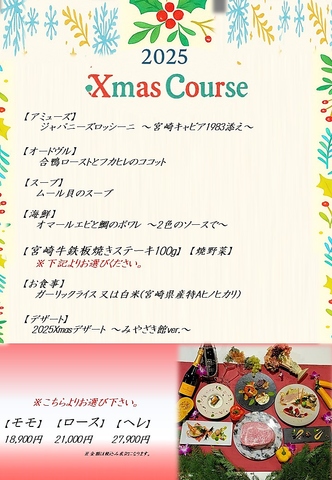 2025
Xmas Course
【アミューズ】
ジャパニーズロッシーニ ～宮崎キャビア1983添え～
【オードヴル】
合鴨ローストとフカヒレのココット
【スープ】
ムール貝のスープ
【海鮮】
オマールエビと鯛のポワレ ～2色のソースで～
【宮崎牛鉄板焼きステーキ100g】【焼野菜】
※下記よりお選びください。
【お食事】
ガーリックライス又は白米(宮崎県産特Aヒノヒカリ)
【デザート】
2025Xmasデザート ～みやざき館ver.～
※こちらよりお選び下さい。
【モモ】 【ロース】 【ヘレ】
18,900円 21,000円 27,900円
※金額は税込み表示になります。